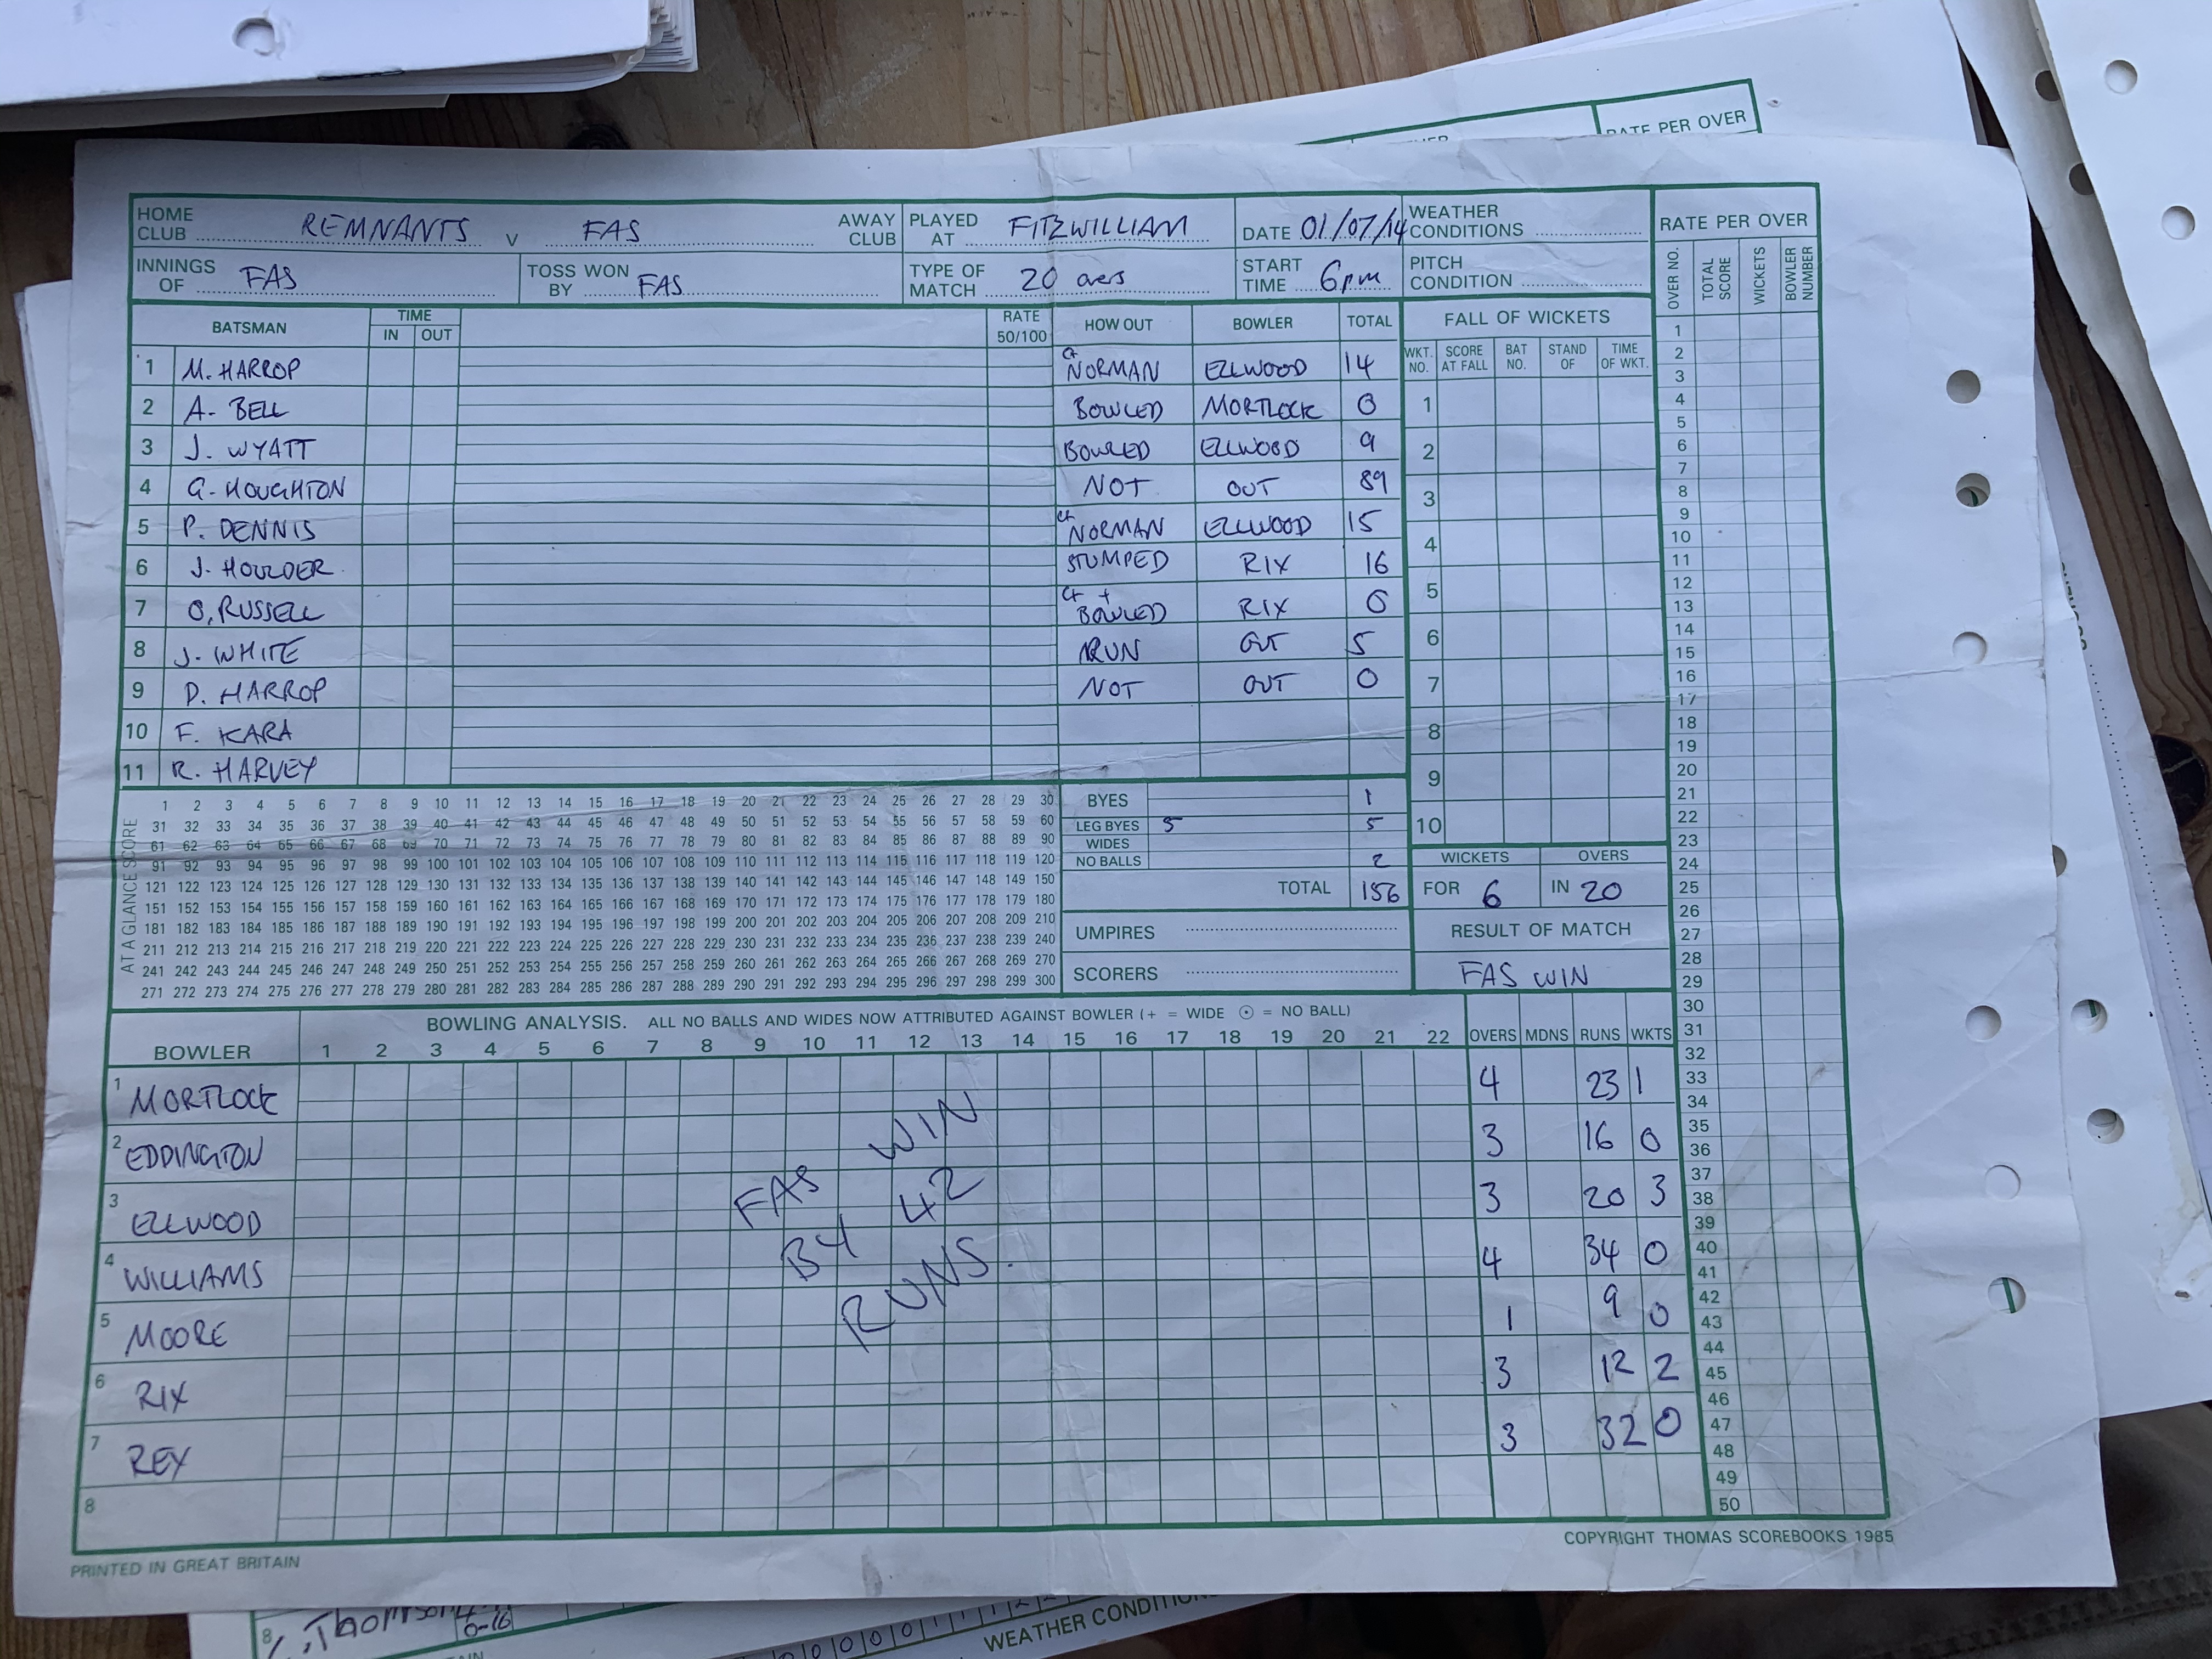 RATE PER OVER
HOME CLUB REMNANTS v FAS AWAY CLUB
PLAYED AT FITZWILLIAM
DATE 01/07/14
WEATHER CONDITIONS
RATE PER OVER
INNINGS OF FAS
TOSS WON BY FAS
TYPE OF MATCH 20 overs
START TIME 6pm
PITCH CONDITION
OVER NO. TOTAL SCORE WICKETS BOWLER NUMBER
BATSMAN TIME IN OUT RATE 50/100 HOW OUT BOWLER TOTAL
1 M. HARROP ct NORMAN ELLWOOD 14
2 A. BELL BOWLED MORTLOCK 0
3 J. WYATT BOWLED ELLWOOD 9
4 G. HOUGHTON NOT OUT 89
5 P. DENNIS ct NORMAN ELLWOOD 15
6 J. HOULDER STUMPED RIX 16
7 O. RUSSELL Ct + BOWLED RIX 0
8 J. WHITE RUN OUT 5
9 D. HARROP NOT OUT 0
10 F. KARA
11 R. HARVEY
FALL OF WICKETS
WKT. NO. SCORE AT FALL BAT NO. STAND OF TIME OF WKT.
1
2
3
4
5
6
7
8
9
10
AT A GLANCE SCORE
1 2 3 4 5 6 7 8 9 10 11 12 13 14 15 16 17 18 19 20 21 22 23 24 25 26 27 28 29 30
31 32 33 34 35 36 37 38 39 40 41 42 43 44 45 46 47 48 49 50 51 52 53 54 55 56 57 58 59 60
61 62 63 64 65 66 67 68 69 70 71 72 73 74 75 76 77 78 79 80 81 82 83 84 85 86 87 88 89 90
91 92 93 94 95 96 97 98 99 100 101 102 103 104 105 106 107 108 109 110 111 112 113 114 115 116 117 118 119 120
121 122 123 124 125 126 127 128 129 130 131 132 133 134 135 136 137 138 139 140 141 142 143 144 145 146 147 148 149 150
151 152 153 154 155 156 157 158 159 160 161 162 163 164 165 166 167 168 169 170 171 172 173 174 175 176 177 178 179 180
181 182 183 184 185 186 187 188 189 190 191 192 193 194 195 196 197 198 199 200 201 202 203 204 205 206 207 208 209 210
211 212 213 214 215 216 217 218 219 220 221 222 223 224 225 226 227 228 229 230 231 232 233 234 235 236 237 238 239 240
241 242 243 244 245 246 247 248 249 250 251 252 253 254 255 256 257 258 259 260 261 262 263 264 265 266 267 268 269 270
271 272 273 274 275 276 277 278 279 280 281 282 283 284 285 286 287 288 289 290 291 292 293 294 295 296 297 298 299 300
BYES 1
LEG BYES 5 5
WIDES
NO BALLS 2
TOTAL 156
WICKETS OVERS
FOR 6 IN 20
UMPIRES
SCORERS
RESULT OF MATCH
FAS WIN
BOWLING ANALYSIS. ALL NO BALLS AND WIDES NOW ATTRIBUTED AGAINST BOWLER (+ = WIDE ⊙ = NO BALL)
BOWLER 1 2 3 4 5 6 7 8 9 10 11 12 13 14 15 16 17 18 19 20 21 22 OVERS MDNS RUNS WKTS
1 MORTLOCK 4 23 1
2 EDDINGTON 3 16 0
3 ELLWOOD 3 20 3
4 WILLIAMS 4 34 0
5 MOORE 1 9 0
6 RIX 3 12 2
7 REX 3 32 0
8
FAS WIN
BY 42
RUNS.
1
2
3
4
5
6
7
8
9
10
11
12
13
14
15
16
17
18
19
20
21
22
23
24
25
26
27
28
29
30
31
32
33
34
35
36
37
38
39
40
41
42
43
44
45
46
47
48
49
50
PRINTED IN GREAT BRITAIN
COPYRIGHT THOMAS SCOREBOOKS 1985
8 Thompson
0-16
WEATHER CONDITIONS